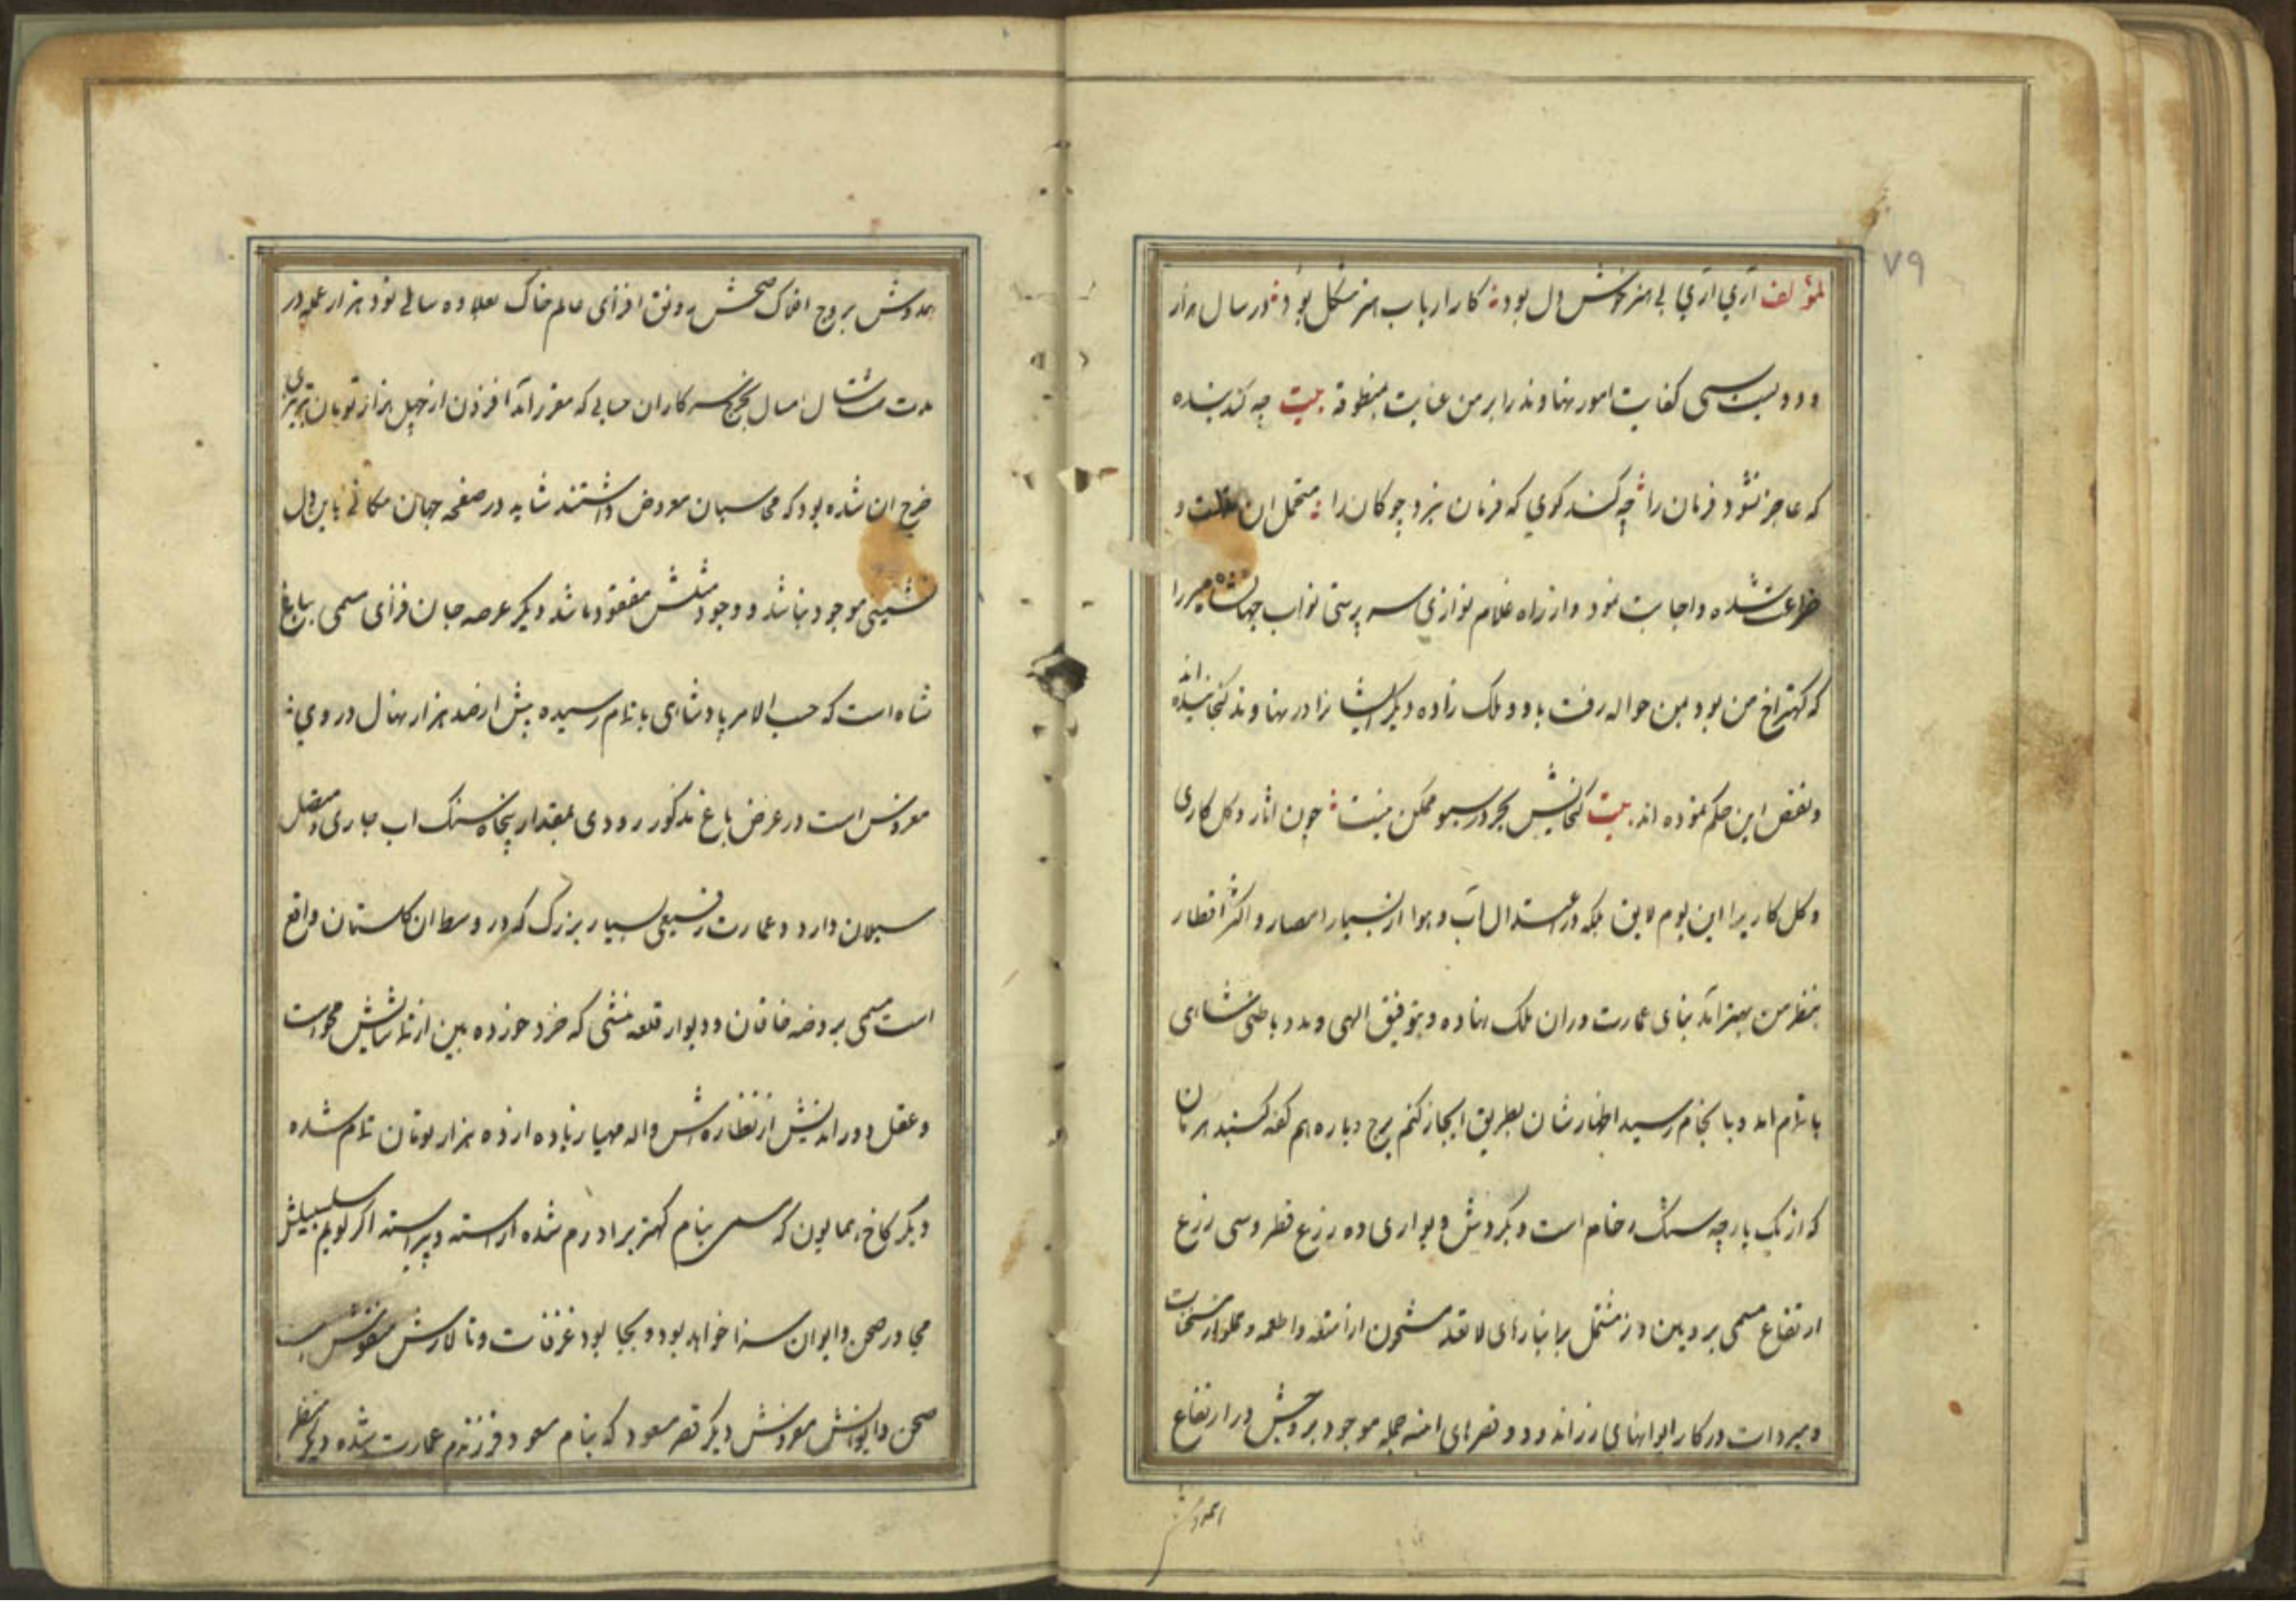 ۷۹
لمؤلفه آري آري بی هنر خوش دل بود کار ارباب هنر مشکل بود در سال هزار
و دویست سی کفایت امور نهاوند را بر من عنایت بیت چه کند بنده
که عاجز نشود فرمان را چه کند کوي که فرمان نبرد چوکان را متحمل ان و
ضراعت شده و اجابت نمود و از راه غلام نوازی سرپرستی نواب جهانشاه میرزا
که کهتر اخ من بود بمن حواله رفت با دو ملک زاده دیکر ایشانرا در نهاوند کنجانیده اند
و نقض این حکم نموده اند بیت کنجایش بحر در سبو ممکن نیست چون اثار و کل کاری
و کل کاریرا این بوم لایق بلکه در اعتدال آب و هوا از بسیار امصار و اکثر اقطار
بنظر من بهتر آمد بنای عمارت دران ملک نهاده و بتوفیق الهی و مدد باطن شاهی
باتمام امد و بانجام رسید اظهارشان بطریق ایجاز کنم برج دباره هم کفه کنبد هرمان
که از یک پارچه سنک رخام است و بکردش دیواری ده زرع قطر و سی زرع
ارتفاع مسمی برویین دز مشتمل برانبارهای مشحون از امتعه و اطعمه و مملو از
و میردات در کار ایوانهای و قصرهای امنه جمله موجود بروجش در ارتفاع
همدوش
همدوش بروج افلاک صحنش رونق افزای عالم خاک بعلاوه سالی نود هزار عمله در
مدت هشت سال امسال بخرج سرکاران حسابی که مقرر آمد افزون از چهل هزار تومان تبریزی
خرج ان شده بود که محاسبان معروض داشتند شاید در صفحه جهان مکانی باین دل
نشینی موجود نباشد و وجود مثلش مفقود باشد دیکر عرصه جان فزای مسمی بباغ
شاه است که حسب الامر پادشاهی باتمام رسیده بیش از صد هزار نهال در وي
مغروس است در عرض باغ مذکور رودی بمقدار پنجاه سنک اب جاری و متصل
سیلان دارد و عمارت رفیعی بسیار بزرک که در وسط ان کلستان واقع
است مسمی بروضه خاقان و دیوار قلعه منشی که خرد خورده بین از تماشایش محو است
و عقل دوراندیش از نظاره اش واله مهیا زیاده از ده هزار تومان تمام شده
دیکر کاخ همایون که مسمی بنام کهتر برادرم شده اراسته و پیراسته اکر کویم سلسبیلش
مجاور صحن و ایوان سزا خواهد بود و بجا بود غرفات و تالارش منقوش
صحن و ایوانش مفروش دیکر قصر مسعود که بنام مسعود فرزندم عمارت شده دیکر منظر